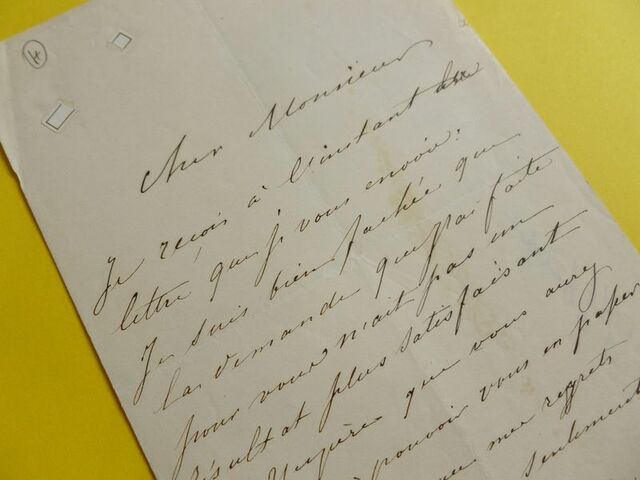 4
Cher Monsieur
Je reçois à l'instant la
lettre que je vous envoie.
Je suis bien fachée que
la demande que j'ai faite
pour vous n'ait pas un
résultat plus satisfaisant
J'espère que vous aurez
pouvoir vous en passer
mes regrets
seulement